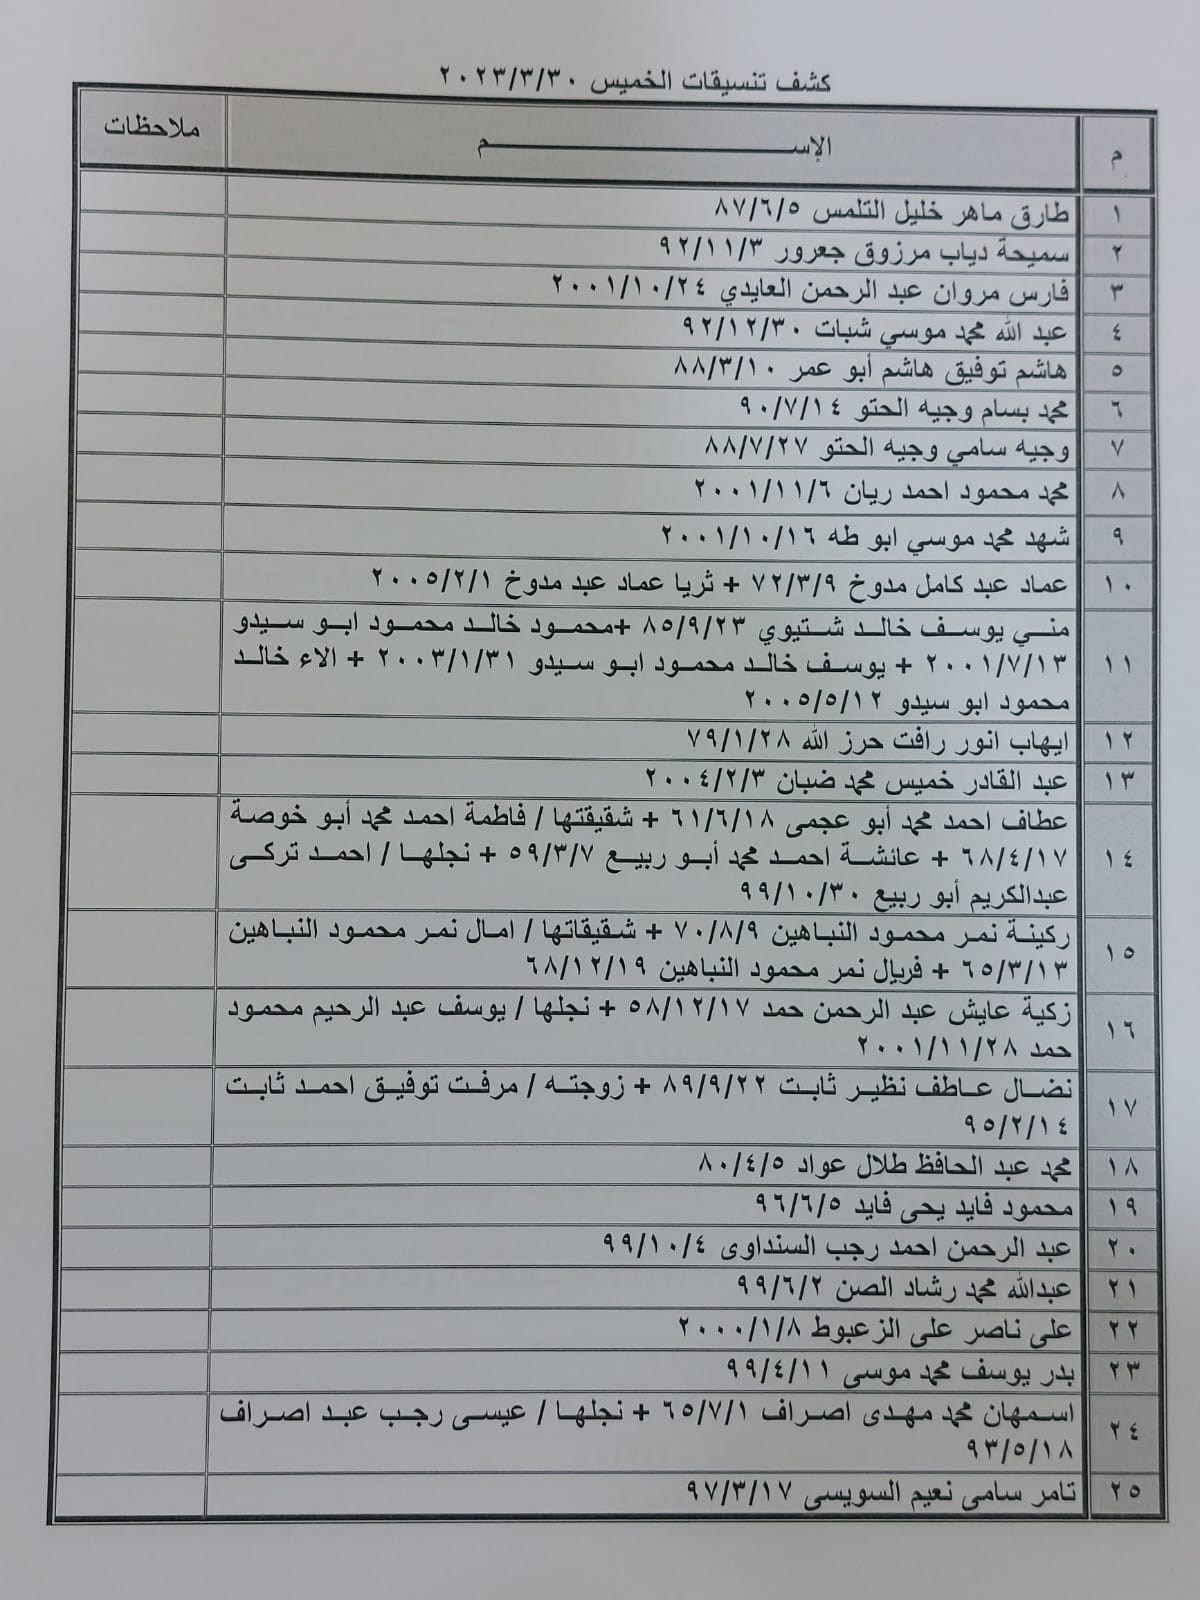 كشف تنسيقات الخميس ٢٠٢٣/٣/٣٠
م الإســـــــــم ملاحظات
١ طارق ماهر خليل التلمس ٨٧/٦/٥
٢ سميحة دياب مرزوق جعرور ٩٢/١١/٣
٣ فارس مروان عبد الرحمن العايدي ٢٠٠١/١٠/٢٤
٤ عبد الله محمد موسي شبات ٩٢/١٢/٣٠
٥ هاشم توفيق هاشم أبو عمر ٨٨/٣/١٠
٦ محمد بسام وجيه الحتو ٩٠/٧/١٤
٧ وجيه سامي وجيه الحتو ٨٨/٧/٢٧
٨ محمد محمود احمد ريان ٢٠٠١/١١/٦
٩ شهد محمد موسي ابو طه ٢٠٠١/١٠/١٦
١٠ عماد عبد كامل مدوخ ٧٢/٣/٩ + ثريا عماد عبد مدوخ ٢٠٠٥/٢/١
منــي يوســف خالــد شــتيوي ٨٥/٩/٢٣ +محمــود خالــد محمــود ابــو ســيدو
١١ ٢٠٠١/٧/١٣ + يوسـف خالـد محمـود ابـو سـيدو ٢٠٠٣/١/٣١ + الاء خالـد
محمود ابو سيدو ٢٠٠٥/٥/١٢
١٢ ايهاب انور رافت حرز الله ٧٩/١/٢٨
١٣ عبد القادر خميس محمد ضبان ٢٠٠٤/٢/٣
عطاف احمد محمد أبو عجمى ٦١/٦/١٨ + شقيقتها / فاطمة احمد محمد أبو خوصة
١٤ ٦٨/٤/١٧ + عائشــة احمــد محمد أبــو ربيــع ٥٩/٣/٧ + نجلهــا / احمــد تركــى
عبدالكريم أبو ربيع ٩٩/١٠/٣٠
١٥ ركينـة نمـر محمـود النبـاهين ٧٠/٨/٩ + شـقيقاتها / امـال نمـر محمـود النبـاهين
٦٥/٣/١٣ + فريال نمر محمود النباهين ٦٨/١٢/١٩
١٦ زكية عايش عبد الرحمن حمد ٥٨/١٢/١٧ + نجلها / يوسف عبد الرحيم محمود
حمد ٢٠٠١/١١/٢٨
١٧ نضـال عـاطف نظيـر ثابـت ٨٩/٩/٢٢ + زوجتـه / مرفـت توفيـق احمـد ثابـت
٩٥/٢/١٤
١٨ محمد عبد الحافظ طلال عواد ٨٠/٤/٥
١٩ محمود فايد يحى فايد ٩٦/٦/٥
٢٠ عبد الرحمن احمد رجب السنداوى ٩٩/١٠/٤
٢١ عبدالله محمد رشاد الصن ٩٩/٦/٢
٢٢ على ناصر على الزعبوط ٢٠٠٠/١/٨
٢٣ بدر يوسف محمد موسى ٩٩/٤/١١
٢٤ اسـمهان محمد مهـدى اصـراف ٦٥/٧/١ + نجلهـا / عيسـى رجـب عبـد اصـراف
٩٣/٥/١٨
٢٥ تامر سامى نعيم السويسى ٩٧/٣/١٧